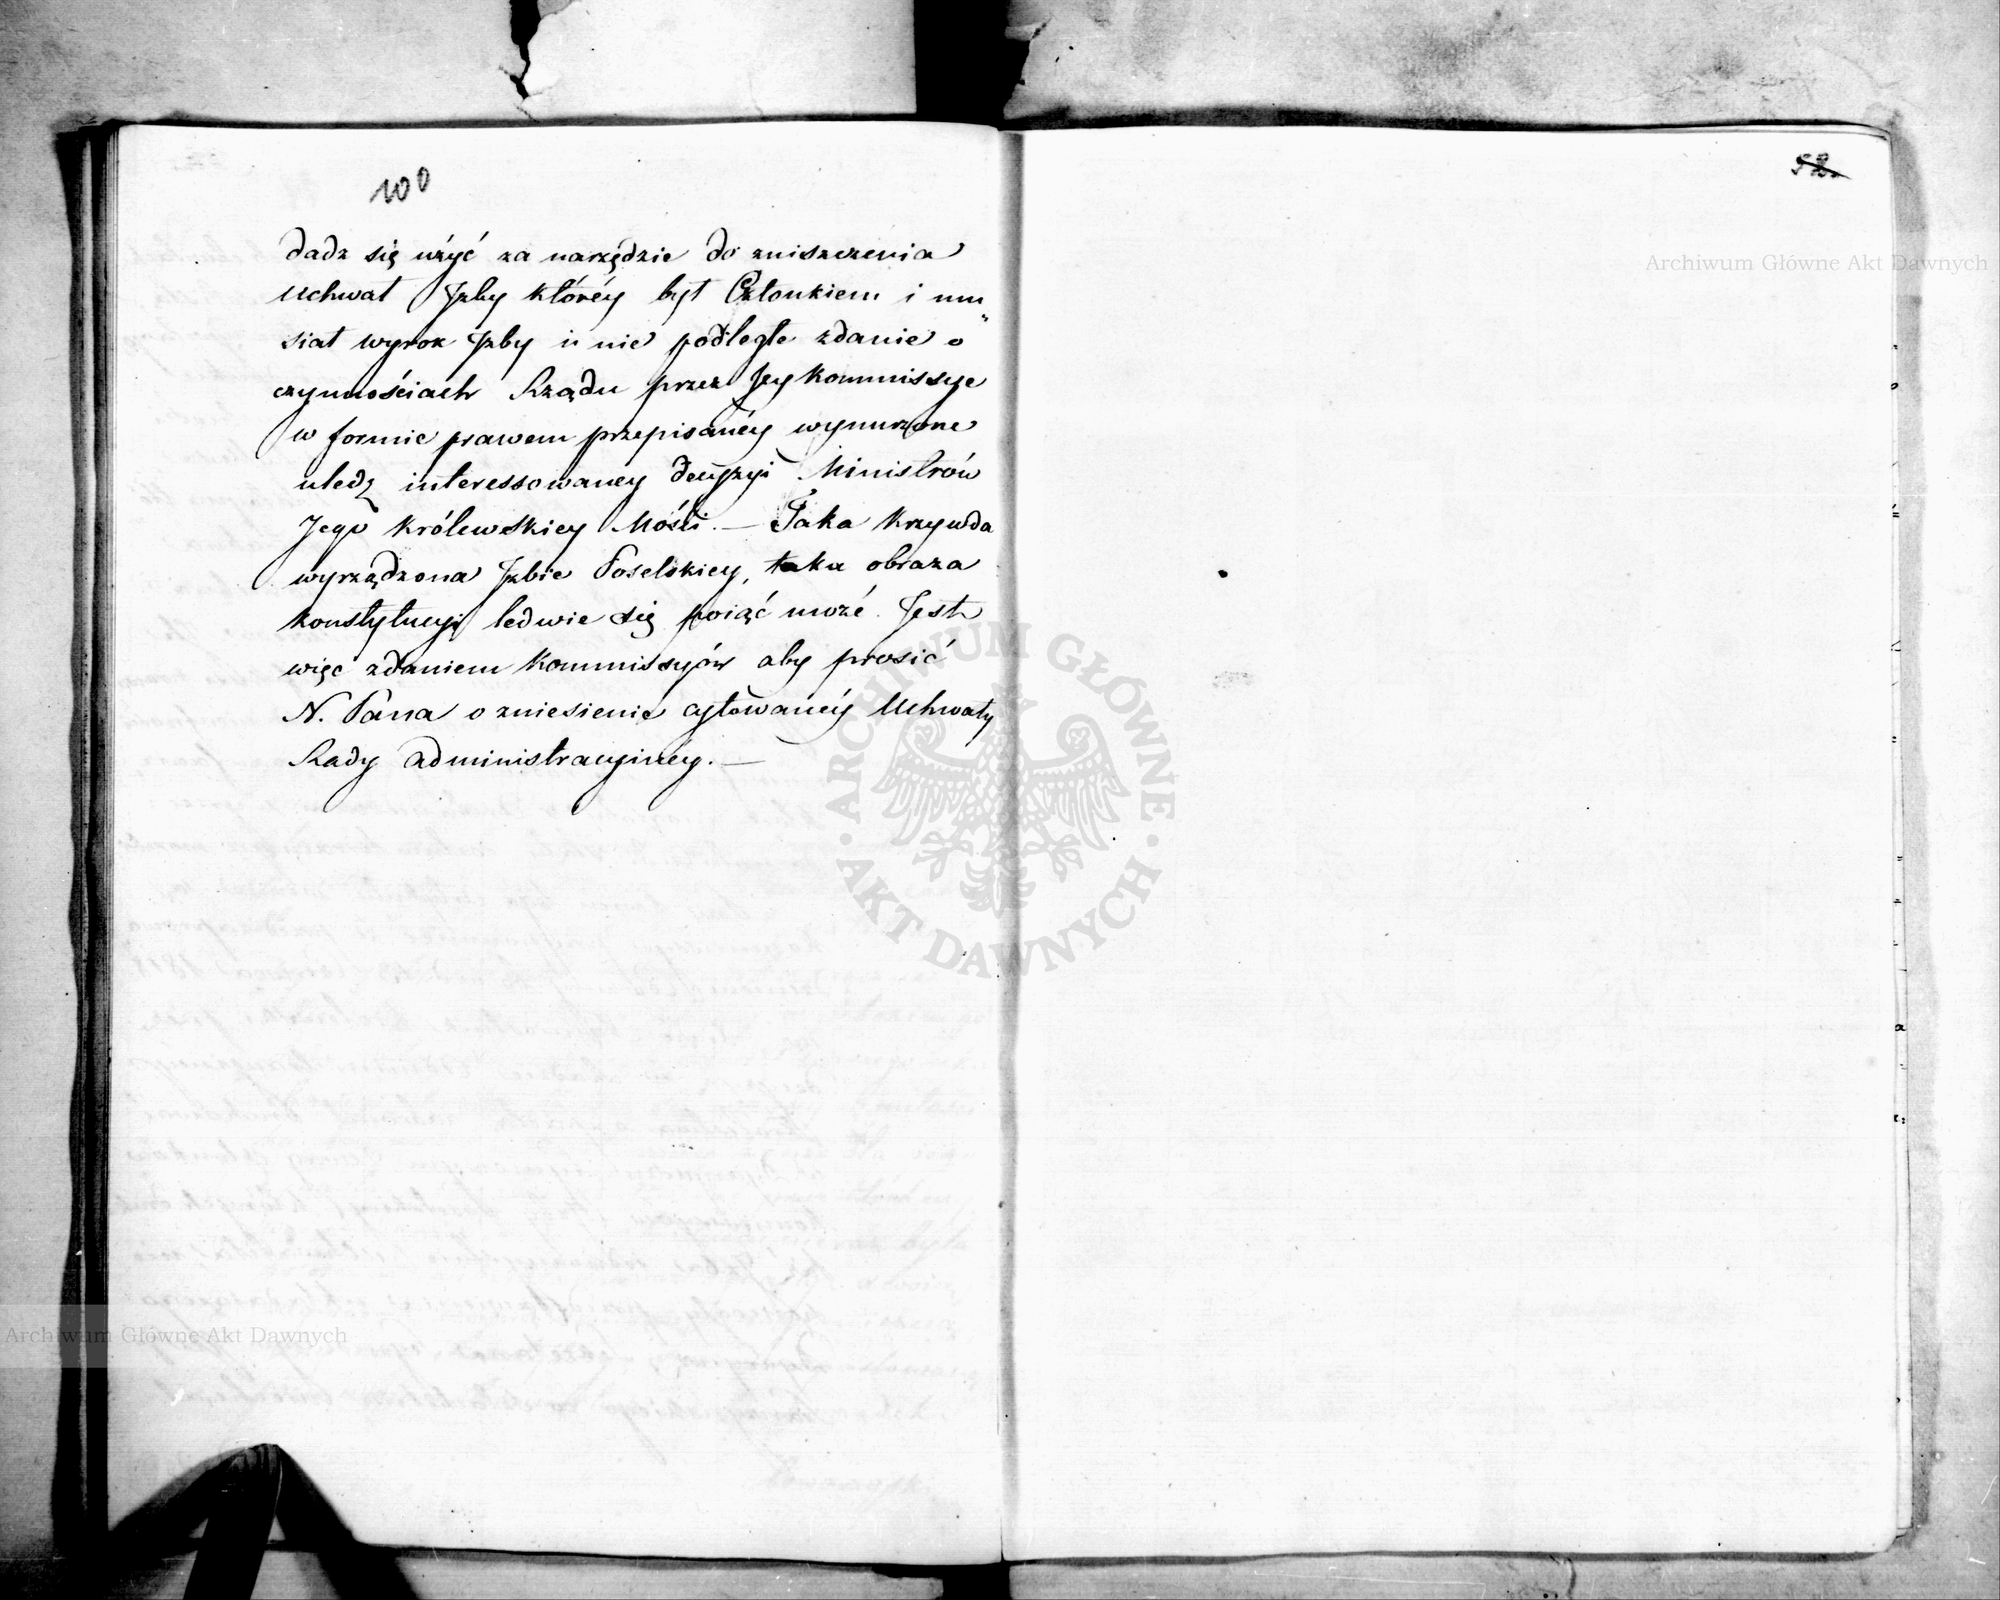 100
dadz się użyć za narzędzie do zniszczenia
Uchwał Jzby któréy był Członkiem i mu„
siał wyrok Jzby i nie podległe zdanie o
czynnościach Rządu przez Jey Kommissye
w formie prawem przepisanéy wynurzone
uledz interessowaney decyzyi Ministrów
Jego Królewskiey Mości. — Taka Krzywda
wyrządzona Jzbie Poselskiey, taka obraza
Konstytucyi ledwie się poiąć może. Jest
więc zdaniem Kommissyów aby prosić
N. Pana o zniesienie cytowanéy Uchwały
Rady administracyinéy. —
52.
Archiwum Główne Akt Dawnych
ARCHIWUM GŁÓWNE · AKT DAWNYCH ·
Archiwum Główne Akt Dawnych